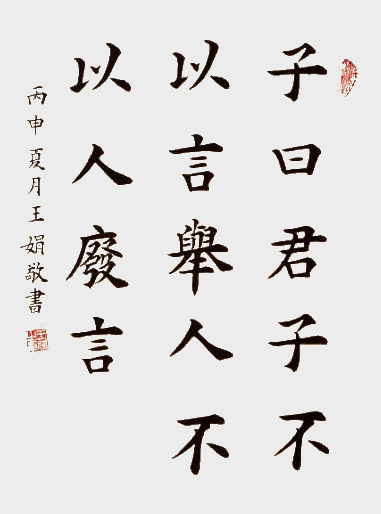 子曰君子不
以言舉人不
以人廢言
丙申夏月王娟敬書